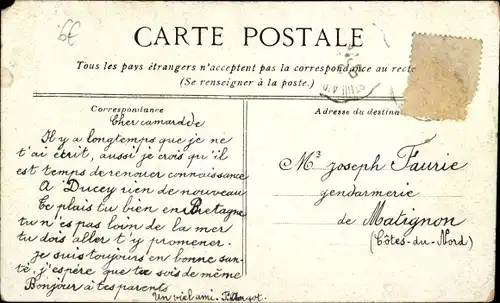 6f
CARTE POSTALE
Tous les pays étrangers n'acceptent pas la correspondance au recto
(Se renseigner à la poste.)
Correspondance
Adresse du destina
Cher camardde
Il y a longtemps que je ne
t'ai écrit, aussi je crois qu'il
est temps de renouer connaissance
A Ducey rien de nouveau
Te plais tu bien en Bretagne
tu n'es pas loin de la mer
tu dois aller t'y promener.
je suis toujours en bonne san-
té, j'espère que tu sois de même
Bonjour à tes parents
Un viel ami.
Mr joseph Faurie
gendarmerie
de Matignon
(Côtes-du-Nord)